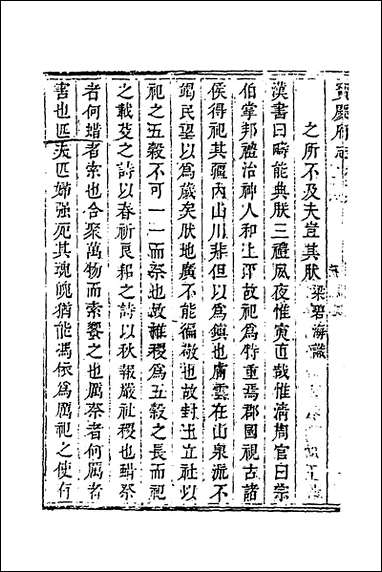 之所不及夫豈其朕梁碧海識
漢書曰疇能典朕三禮夙夜惟寅直哉惟清周官曰宗
伯掌邦禮治神人和上下故祀為特重焉郡國視古諸
侯得祀其疆内山川非但以為鎮也膚雲在山泉流不
竭民望以為歲矣朕地廣不能徧敬也故封土立社以
祀之五穀不可一一而祭也故稷稷為五穀之長而祀
之載芟之詩以春祈良耜之詩以秋報嚴社稷也蜡祭
者何蜡者索也合聚萬物而索饗之也厲祭者何厲者
害也匹夫匹婦強死其魂魄猶能馮依為厲祀之使有